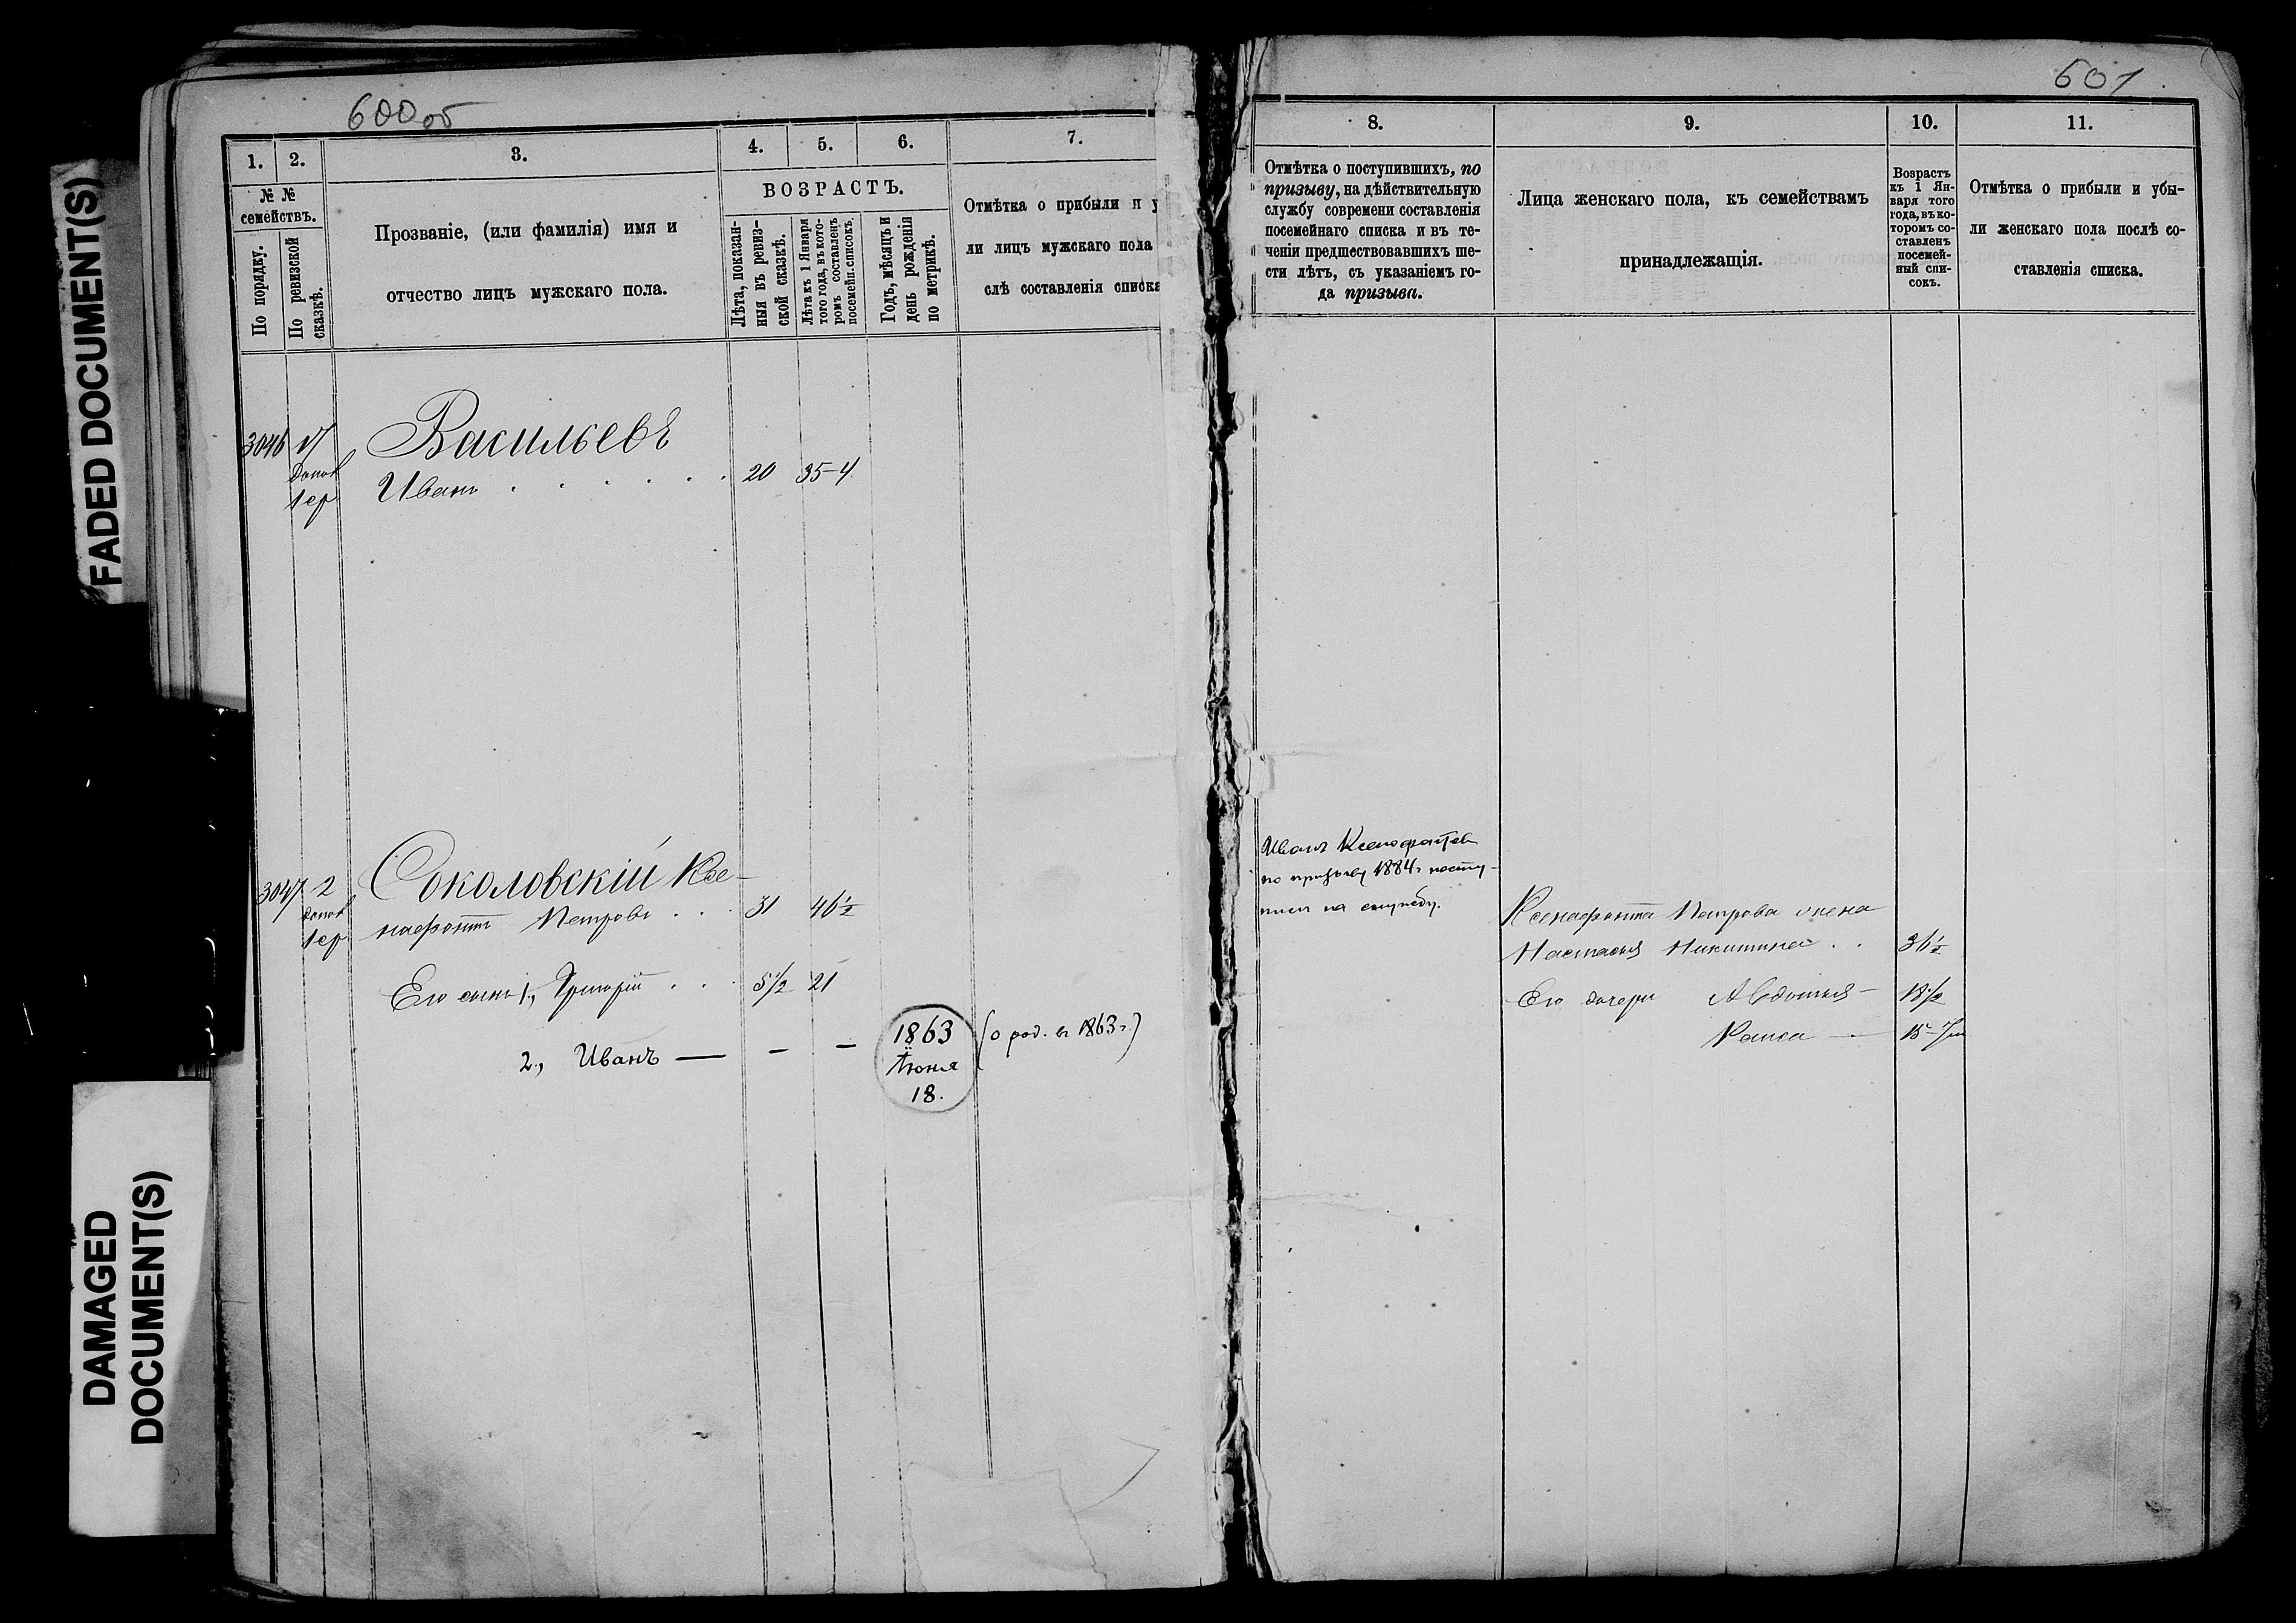 FADED DOCUMENT(S)
DAMAGED
DOCUMENT(S)
600 об
1. 2. 3. 4. 5. 6. 7.
№ №
семействъ.
По порядку.
По ревизской
сказкѣ.
Прозваніе, (или фамилія) имя и
отчество лицъ мужскаго пола.
ВОЗРАСТЪ.
Лѣта, показан-
ныя въ ревиз-
ской сказкѣ.
Лѣта къ 1 Января
того года, въ кото-
ромъ составленъ
посемейн. списокъ.
Годъ, мѣсяцъ и
день рожденія
по метрикѣ.
Отмѣтка о прибыли и у
ли лицъ мужскаго пола
слѣ составленія списка
3046 Васильевъ
Иванъ . . . . . . 20 35-4
3047 2 Соколовскій Ксе-
нафонтъ Петровъ . . . 31 46½
Его сынъ 1., Григорій . . . 5½ 21
2., Иванъ — - - 1863 (о род. въ 1863 г.)
Іюня
18.
601
8. 9. 10. 11.
Отмѣтка о поступившихъ, по
призыву, на дѣйствительную
службу современи составленія
посемейнаго списка и въ те-
ченіи предшествовавшихъ ше-
сти лѣтъ, съ указаніемъ го-
да призыва.
Лица женскаго пола, къ семействамъ
принадлежащія.
Возрастъ
къ 1 Ян-
варя того
года, въ ко-
торомъ со-
ставленъ
посемей-
ный спи-
сокъ.
Отмѣтка о прибыли и убы-
ли женскаго пола послѣ со-
ставленія списка.
Иванъ Ксенофонтовъ
по призыву 1884 г. посту-
пилъ на службу.
Ксенафонта Петрова жена
Настасья Никитина . . 36½
Его дочери Авдотья — 18½
Раиса —